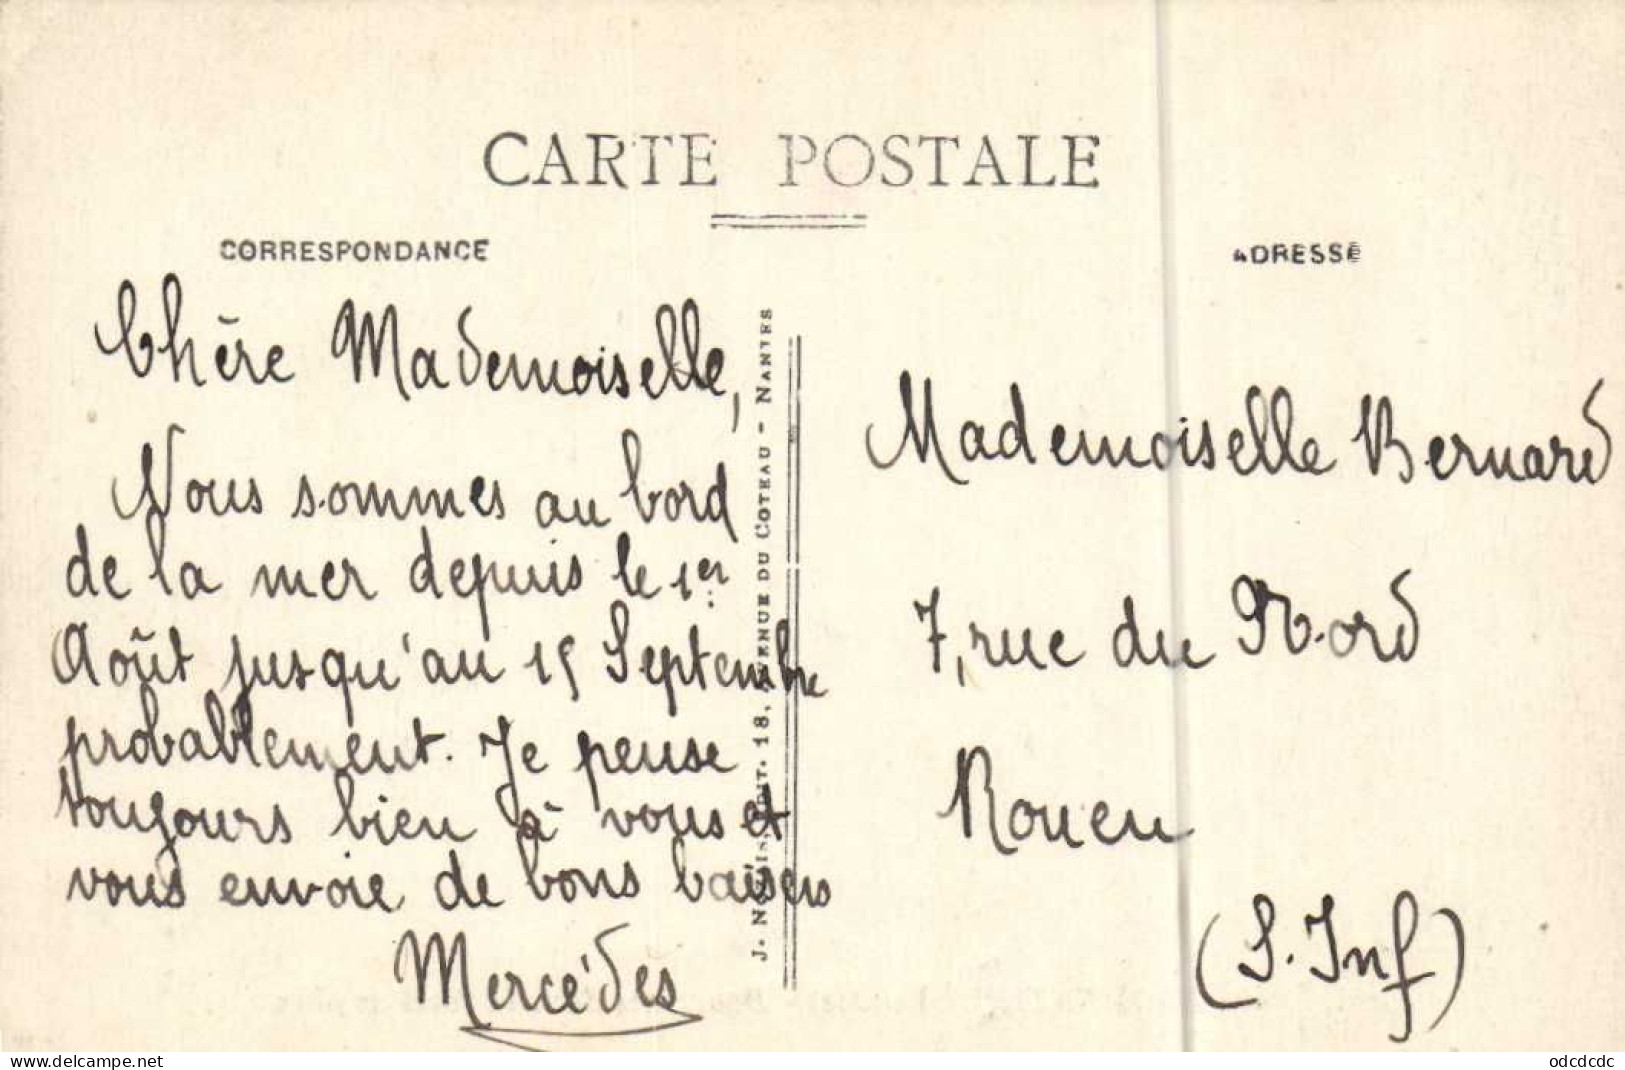 CARTE POSTALE
CORRESPONDANCE
Chère Mademoiselle,
Nous sommes au bord
de la mer depuis le 1er
Août jusqu'au 15 Septembre
probablement. Je pense
toujours bien à vous et
vous envoie de bons baisers
Mercédès
18, AVENUE DU COTEAU - NANTES
ADRESSE
Mademoiselle Bernard
7, rue du Nord
Rouen
(S. Inf)
www.delcampe.net
odcdcdc